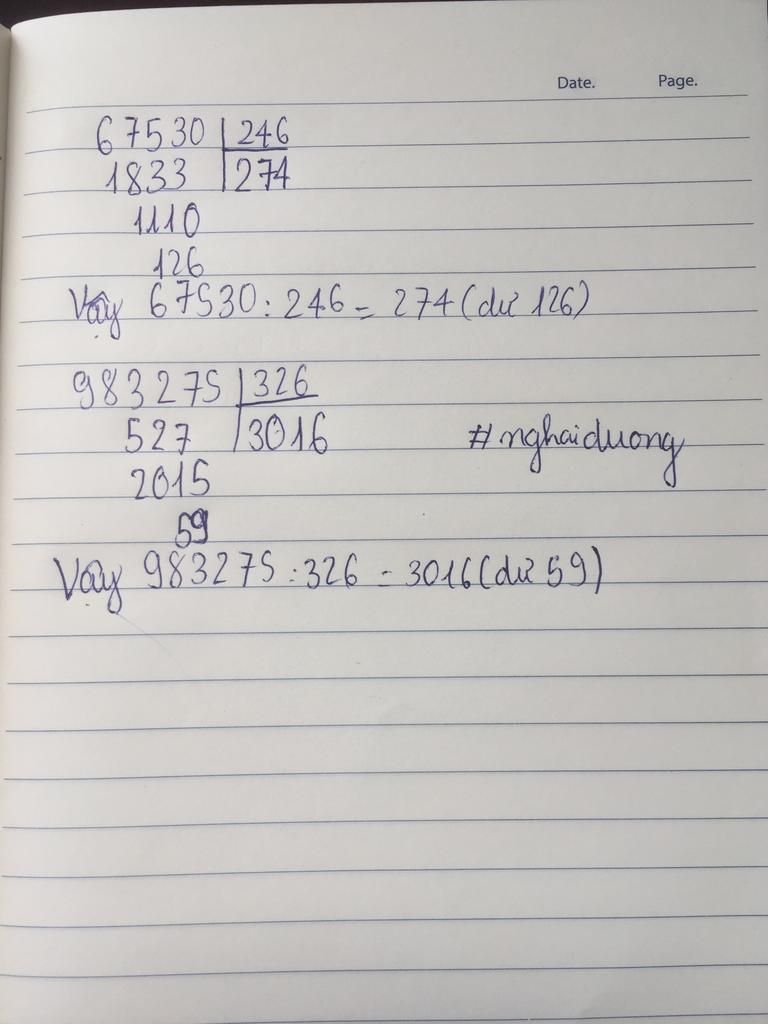 Date. Page.
67530 246
1833 274
1110
126
Vậy 67530 : 246 = 274 (dư 126)
983275 326
527 3016
#nghaiduong
2015
59
Vậy 983275 : 326 = 3016 (dư 59)